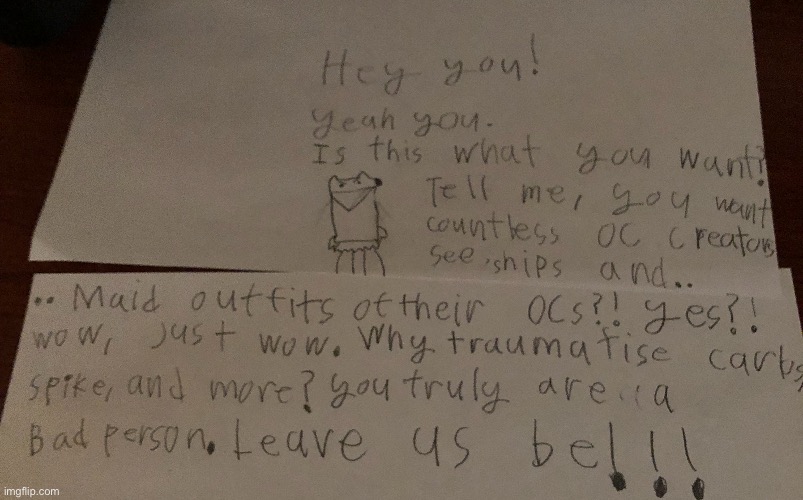 Hey you!
Yeah you.
Is this what you want?
Tell me, you want
countless OC creators
see ships and..
.. Maid outfits of their OCs?! yes?!
wow, just wow. Why traumatise carbs,
spike, and more? you truly are.. a
Bad person. Leave us be!!!
imgflip.com